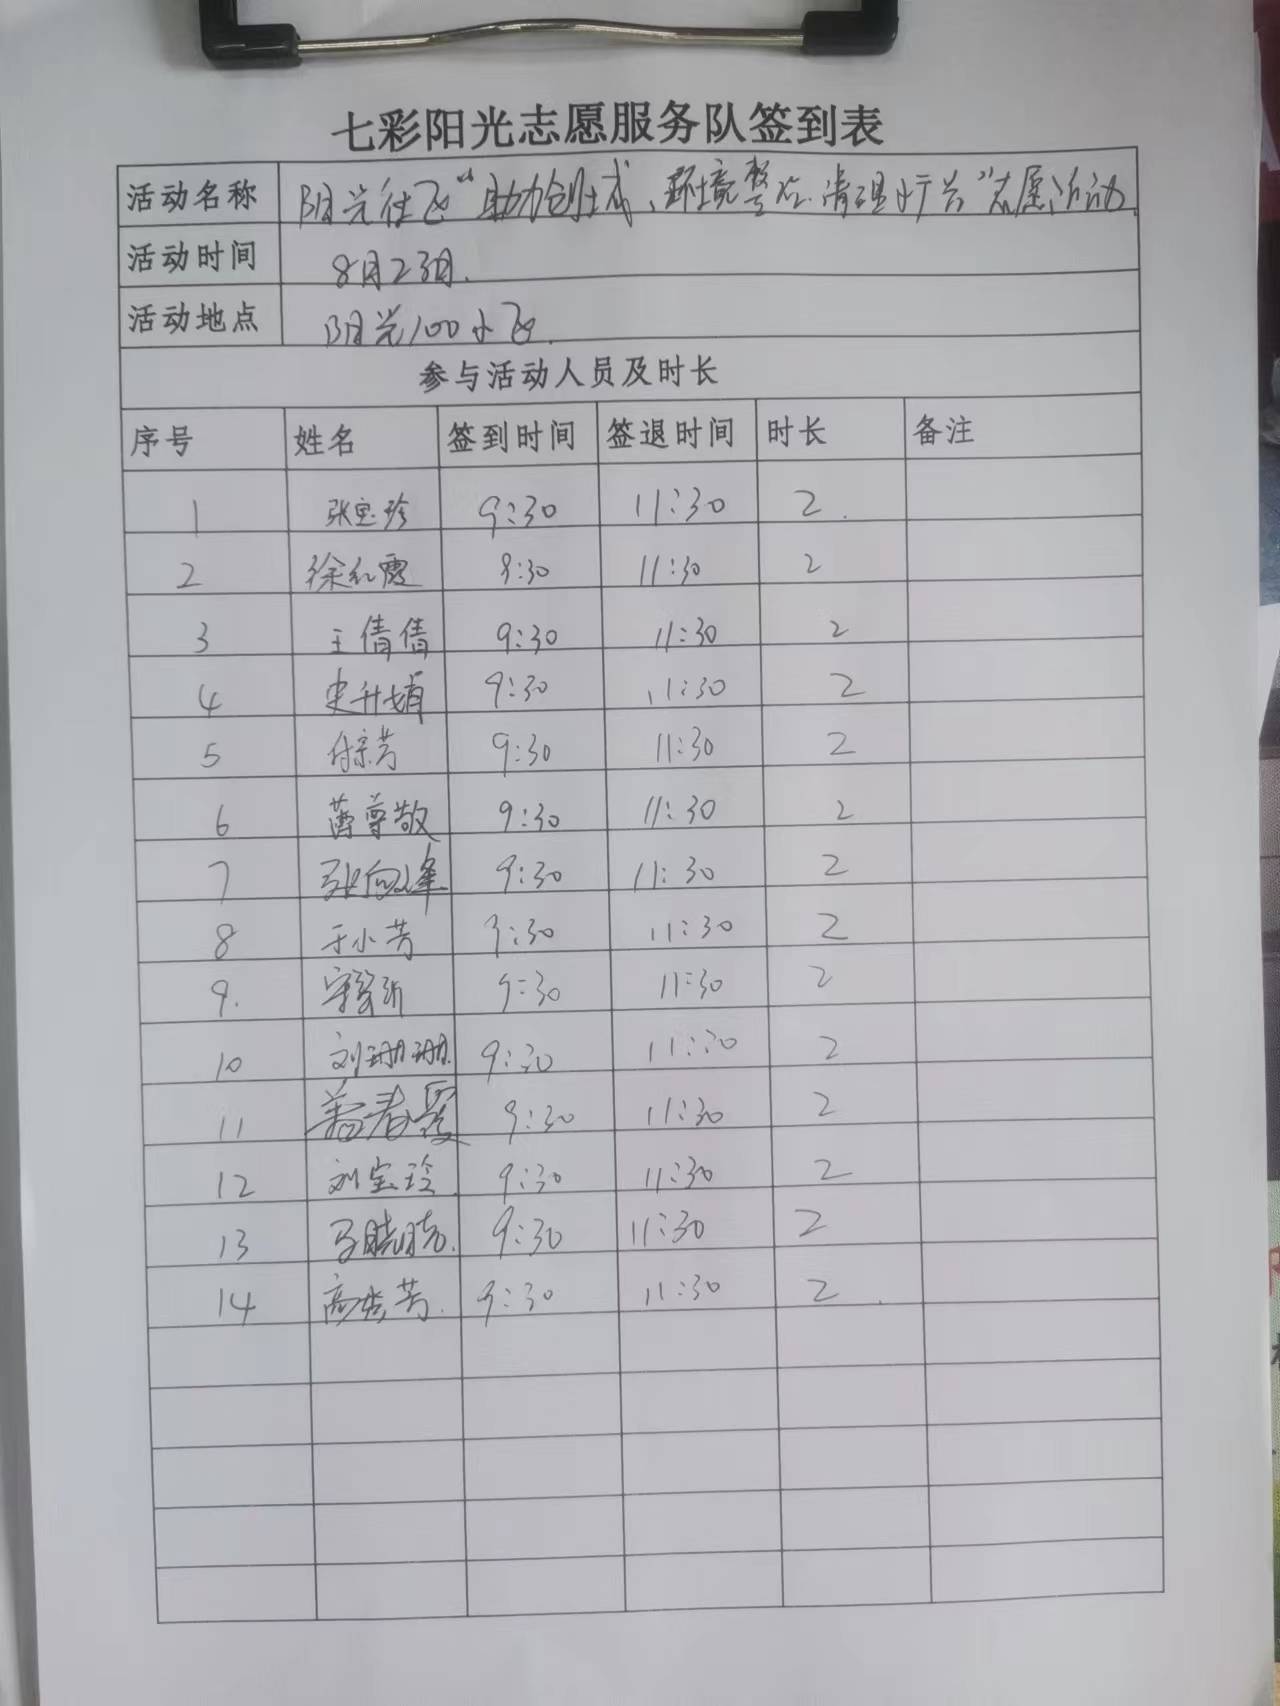 七彩阳光志愿服务队签到表
活动名称 阳光社区“助力创城、环境整治、清理小广告”志愿活动
活动时间 8月23日.
活动地点 阳光100小区.
参与活动人员及时长
序号 姓名 签到时间 签退时间 时长 备注
1 张宝珍 9:30 11:30 2.
2 徐红霞 9:30 11:30 2
3 王倩倩 9:30 11:30 2
4 史升娟 9:30 11:30 2
5 付宗芳 9:30 11:30 2
6 尊敬 9:30 11:30 2
7 张向峰 9:30 11:30 2
8 于小芳 9:30 11:30 2
9. 9:30 11:30 2
10 刘珊珊. 9:30 11:30 2
11 春霞 9:30 11:30 2
12 刘宝玲 9:30 11:30 2
13 马晓晓. 9:30 11:30 2
14 高秀芳. 9:30 11:30 2.